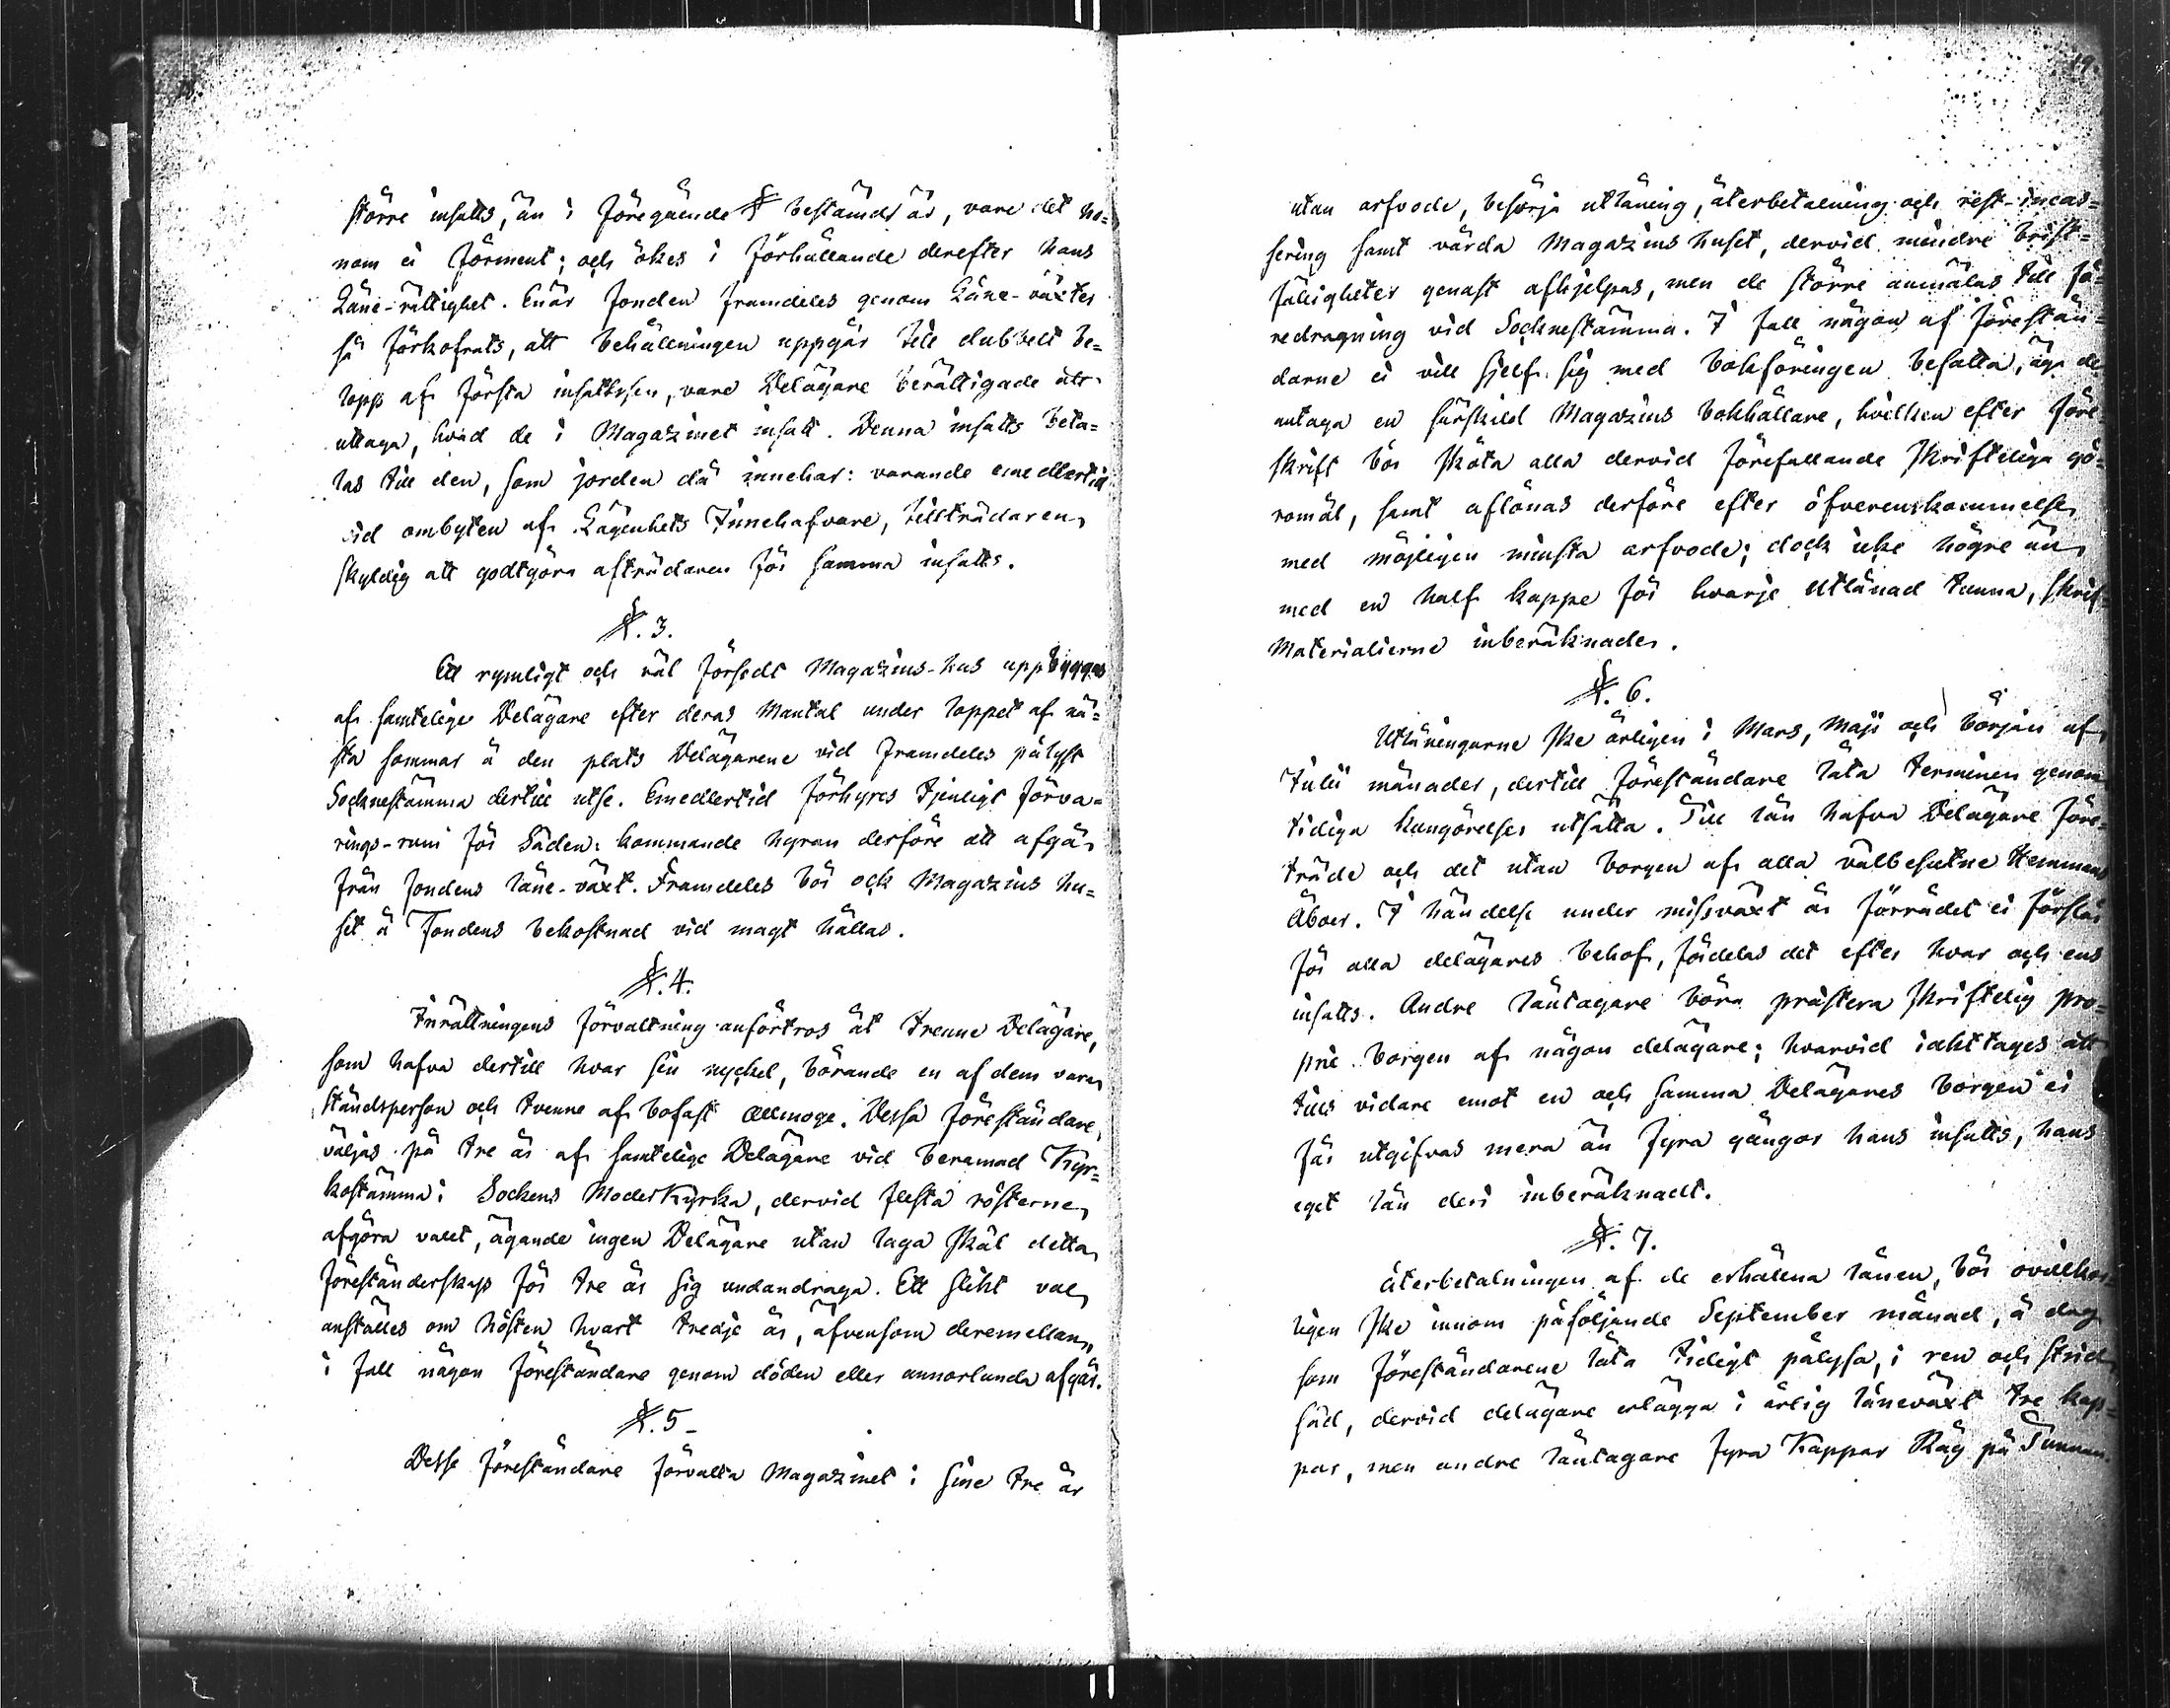 större insatts, än i föregående § bestämdt är, vare det ho=
nom ei förment; och ökes i förhållande derefter hans
Låne-rättighet. Enär fonden framdeles genom Låne-växter
så förkofrats, att behållningen uppgår till dubbelt be=
lopp af första insattsen, vare Delägare berättigade att
uttaga, hvad de i Magazinet insatt. Denna insatts beta=
las till den, som jorden då innehar: varande emedlertid
vid ombyten af Lägenhets Innehafvare, tillträdaren
skyldig att godtgöra afträdaren för samma insatts.
§. 3.
Ett rymligt och väl försedt Magazins-hus uppbygges
af samtelige Delägare efter deras Mantal under loppet af nä=
sta sommar å den plats Delägarene vid framdeles pålyst
Socknestämma dertill utse. Emedlertid förhyres tjenligt förva=
rings-rum för Säden: kommande hyran derföre att afgå
från fondens låne-växt. Framdeles bör ock Magazins hu=
set å Fondens bekostnad vid magt hållas.
§. 4.
Inrättningens förvaltning anförtros åt trenne Delägare,
som hafva dertill hvar sin nyckel, börande en af dem vara
Ståndsperson och tvenne af bofast Allmoge. Dessa föreståndare
väljas på tre år af samtelige Delägare vid beramad Kyr=
kostämma i Sockens Moderkyrka, dervid flesta rösterne
afgöra valet, ägande ingen Delägare utan laga skäl detta
föreståndersskap för tre år sig undandraga. Ett slikt val
anställes om hösten hvart tredje år, äfvensom deremellan,
i fall någon föreståndare genom döden eller annorlunda afgår.
§. 5
Desse föreståndare förvalta Magazinet i sine tre år
19.
utan arfvode, besörja utlåning, återbetalning och rest-incas=
sering samt vårda Magazins huset, dervid mindre brist=
fälligheter genast afhjelpas, men de större anmälas till fö=
redragning vid Socknestämma. I fall någon af förestån=
darne ei vill sjelf sig med bokföringen befatta, äga de
antaga en särskild Magazins bokhållare, hvilken efter före
skrift bör sköta alla dervid förefallande skrifteliga gö=
romål, samt aflönas derföre efter öfverenskommelse
med möjligen minsta arfvode; dock icke högre än
med en half kappe för hvarje utlånad tunna, skrif
Materialierne inberäknade.
§. 6.
Utlåningarne ske årligen i Mars, Maji och början af
Julii månader, dertill föreståndare låta terminen genom
tidiga kungörelser utsätta. Till lån hafva Delägare före=
träde och det utan borgen af alla välbesutne Hemmans
Åboer. I händelse under missväxt är förrådet ei förslår
för alla delägares behof, fördelas det efter hvar och ens
insatts. Andre låntagare böra prästera skriftelig pro=
prie borgen af någon delägare; hvarvid iakttages att
tills vidare emot en och samma Delägares borgen ei
får utgifvas mera än fyra gångor hans insatts, hans
eget lån deri inberäknadt.
§. 7.
Återbetalningen af de erhållna lånen, bör ovilkor
ligen ske innom påföljande September månad, å dag
som föreståndarene låta tidigt pålysa, i ren och strid
säd, dervid delägare erlägga i årlig låneväxt tre kap=
par, men andre låntagare fyra Kappar Råg på Tunnan